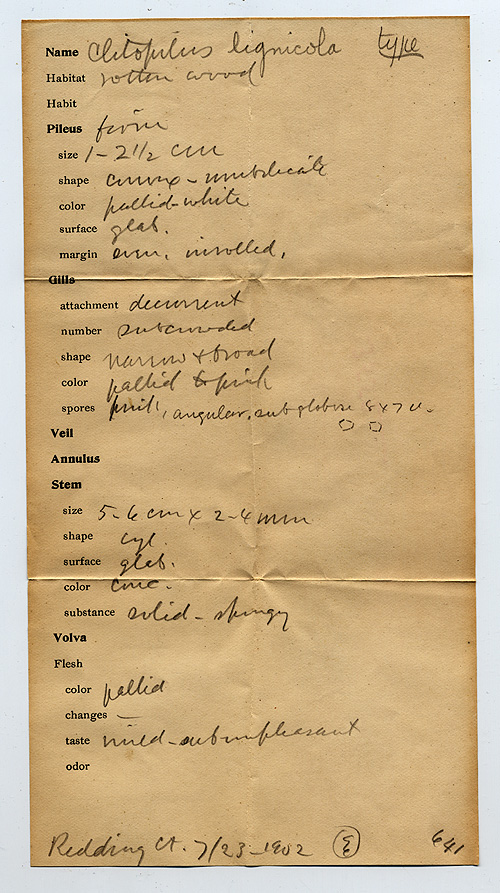 Name Clitopilus lignicola type
Habitat rotten wood
Habit
Pileus firm
size 1-2 1/2 cm
shape convex - umbilicate
color pallid-white
surface glab.
margin even, inrolled,
Gills
attachment decurrent
number subcrowded
shape narrow + broad
color pallid to pink
spores pink, angular, subglobose 8x7 u.
Veil
Annulus
Stem
size 5-6 cm x 2-4 mm
shape cyl.
surface glab.
color conc.
substance solid - spongy
Volva
Flesh
color pallid
changes —
taste mild - subunpleasant
odor
Redding Ct. 7/23-1902 E 641